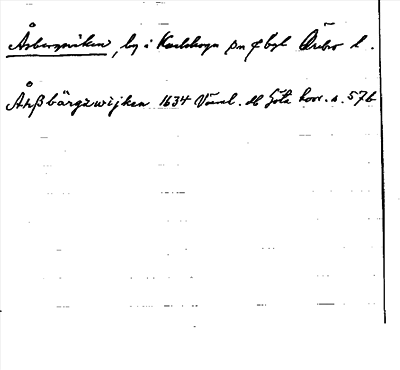 Åsbergsviken, by i Karlskoga sn o bgl Örebro l.
Åhßbärgzwijken 1634 Värml. o Göta hovr. s. 576